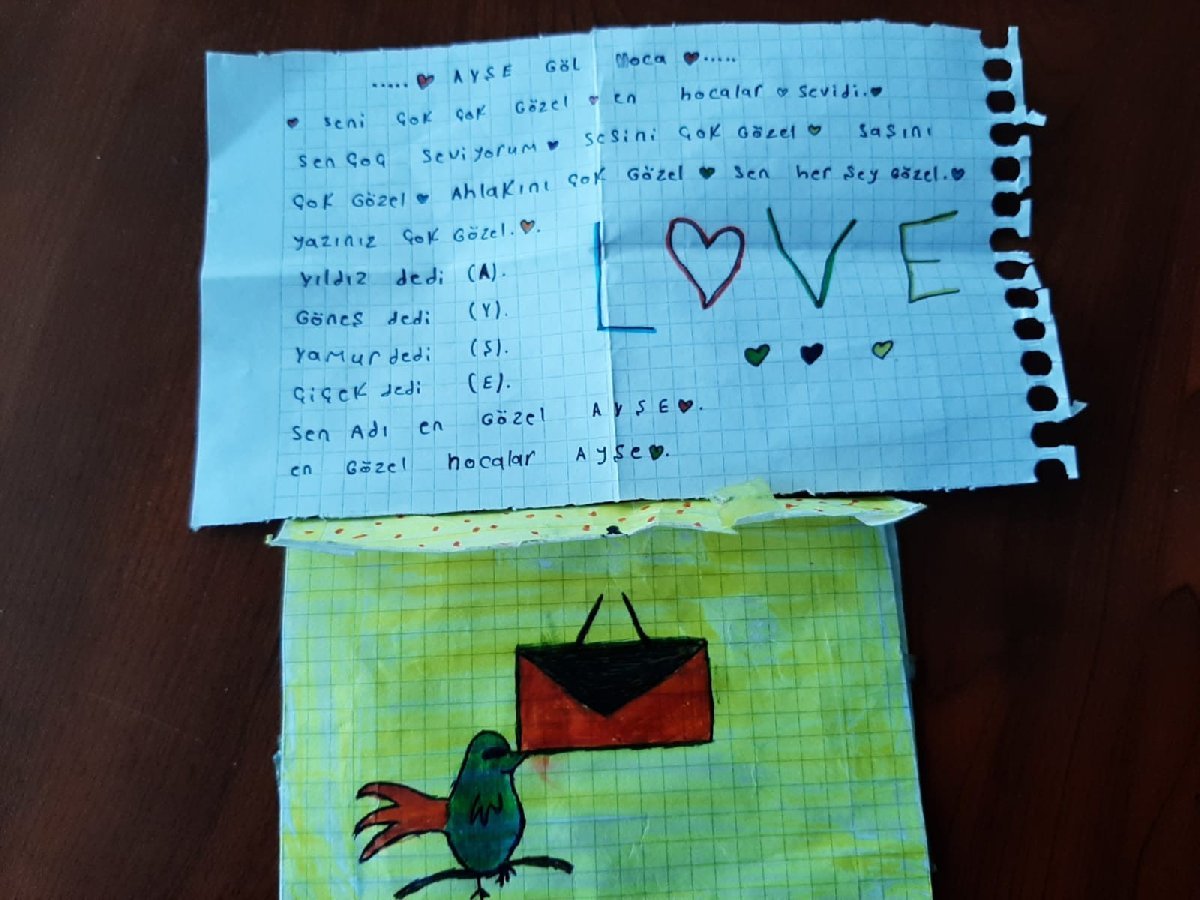 ..... AYŞE GÖL Hoca .....
seni çok çok Gözel en hocalar sevidi.
sen çoq seviyorum sesini çok Gözel saşını
çok Gözel Ahlakını çok Gözel sen her şey Gözel.
yazınız çok Gözel.
LOVE
yıldız dedi (A).
Göneş dedi (Y).
yamur dedi (Ş).
çiçek dedi (E).
sen Adı en Gözel AYŞE.
en Gözel hocalar AYŞe.